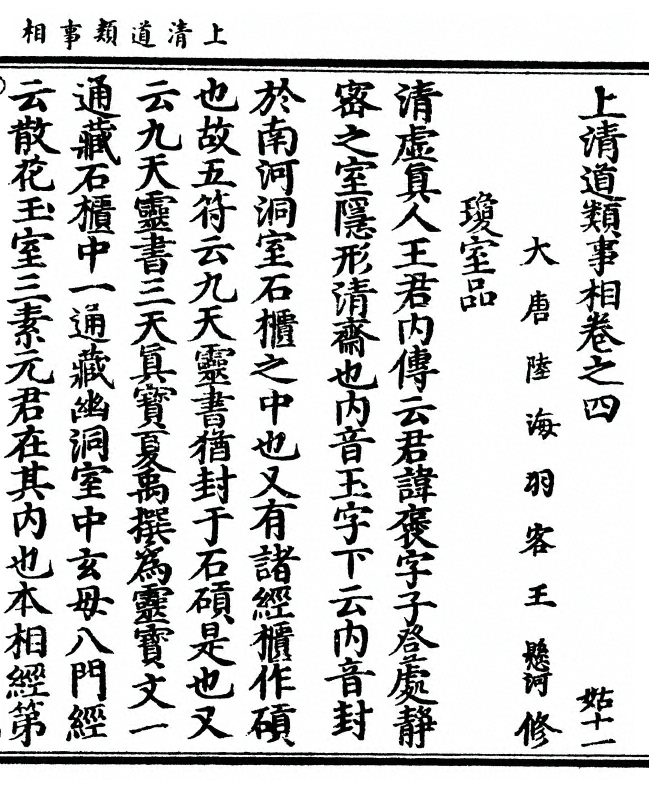 上清道類事相
上清道類事相卷之四
姑十一
大唐陸海羽客王懸河修
瓊室品
清虛真人王君内傳云君諱褒字子登處靜
密之室隱形清齋也内音玉字下云内音封
於南河洞室石櫃之中也又有諸經櫃作碩
也故五符云九天靈書猶封于石碩是也又
云九天靈書三天真寶夏禹撰為靈寶文一
通藏石櫃中一通藏幽洞室中玄母八門經
云散花玉室三素元君在其内也本相經第